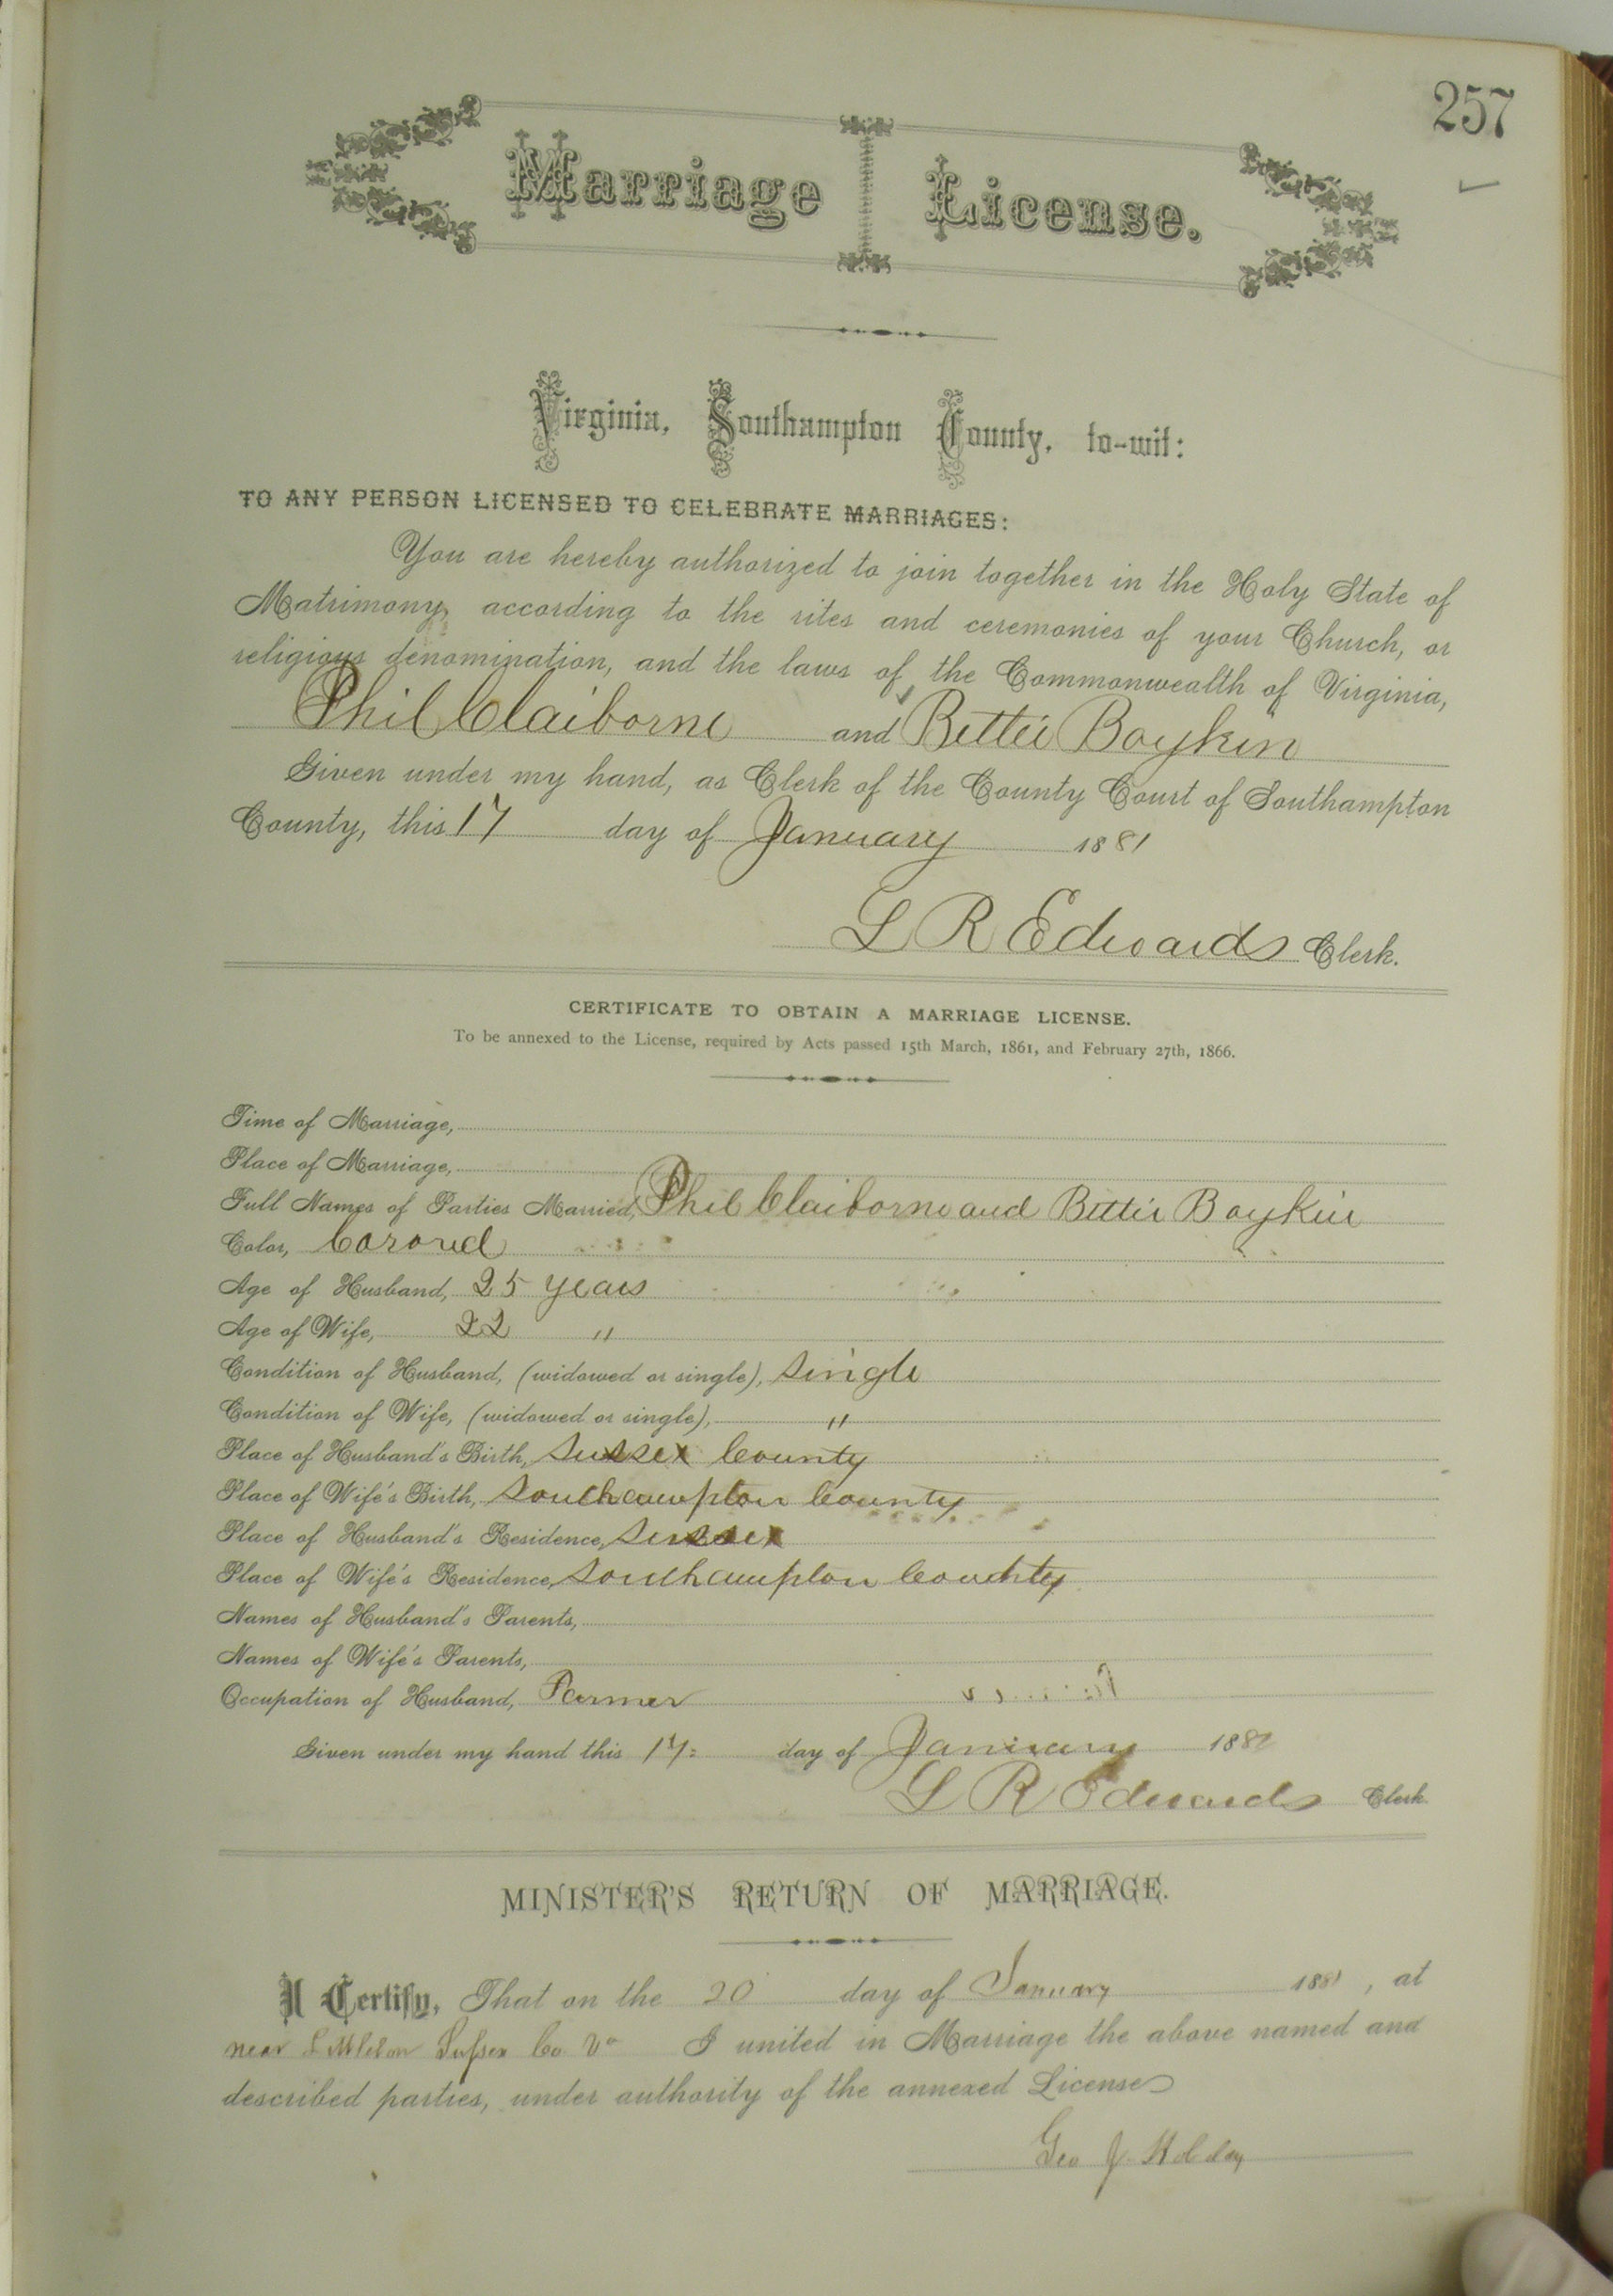 257
Marriage License.
Virginia, Southampton County, to-wit:
TO ANY PERSON LICENSED TO CELEBRATE MARRIAGES:
You are hereby authorized to join together in the Holy State of
Matrimony, according to the rites and ceremonies of your Church, or
religious denomination, and the laws of the Commonwealth of Virginia,
Phil Claiborne and Bettie Boykin
Given under my hand, as Clerk of the County Court of Southampton
County, this 17 day of January 1881
L R Edwards Clerk.
CERTIFICATE TO OBTAIN A MARRIAGE LICENSE.
To be annexed to the License, required by Acts passed 15th March, 1861, and February 27th, 1866.
Time of Marriage,
Place of Marriage,
Full Names of Parties Married, Phil Claiborne and Bettie Boykin
Color, Corored
Age of Husband, 25 years
Age of Wife, 22 "
Condition of Husband, (widowed or single), single
Condition of Wife, (widowed or single), "
Place of Husband's Birth, Sussex County
Place of Wife's Birth, Southampton County
Place of Husband's Residence, Sussex
Place of Wife's Residence, Southampton County
Names of Husband's Parents,
Names of Wife's Parents,
Occupation of Husband, Farmer
Given under my hand this 17: day of January 1881
L R Edwards Clerk
MINISTER'S RETURN OF MARRIAGE.
I Certify, That on the 20 day of January 1881, at
near Littleton Sussex Co. Va I united in Marriage the above named and
described parties, under authority of the annexed License
Geo J. Hobday